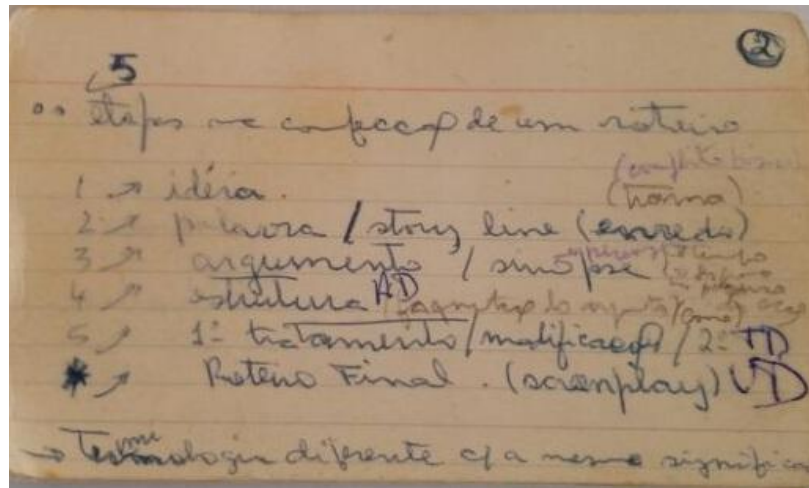 ②
5
etapas na confecção de um roteiro
(conflito
1 → idéia. (trama)
2 → palavra / story line (enredo)
3 → argumento / sinopse
4 → estrutura AD
5 → 1º tratamento / modificação / 2º TD
* → Roteiro Final. (screenplay) UD
→ Terminologia diferente c/ a mesmo